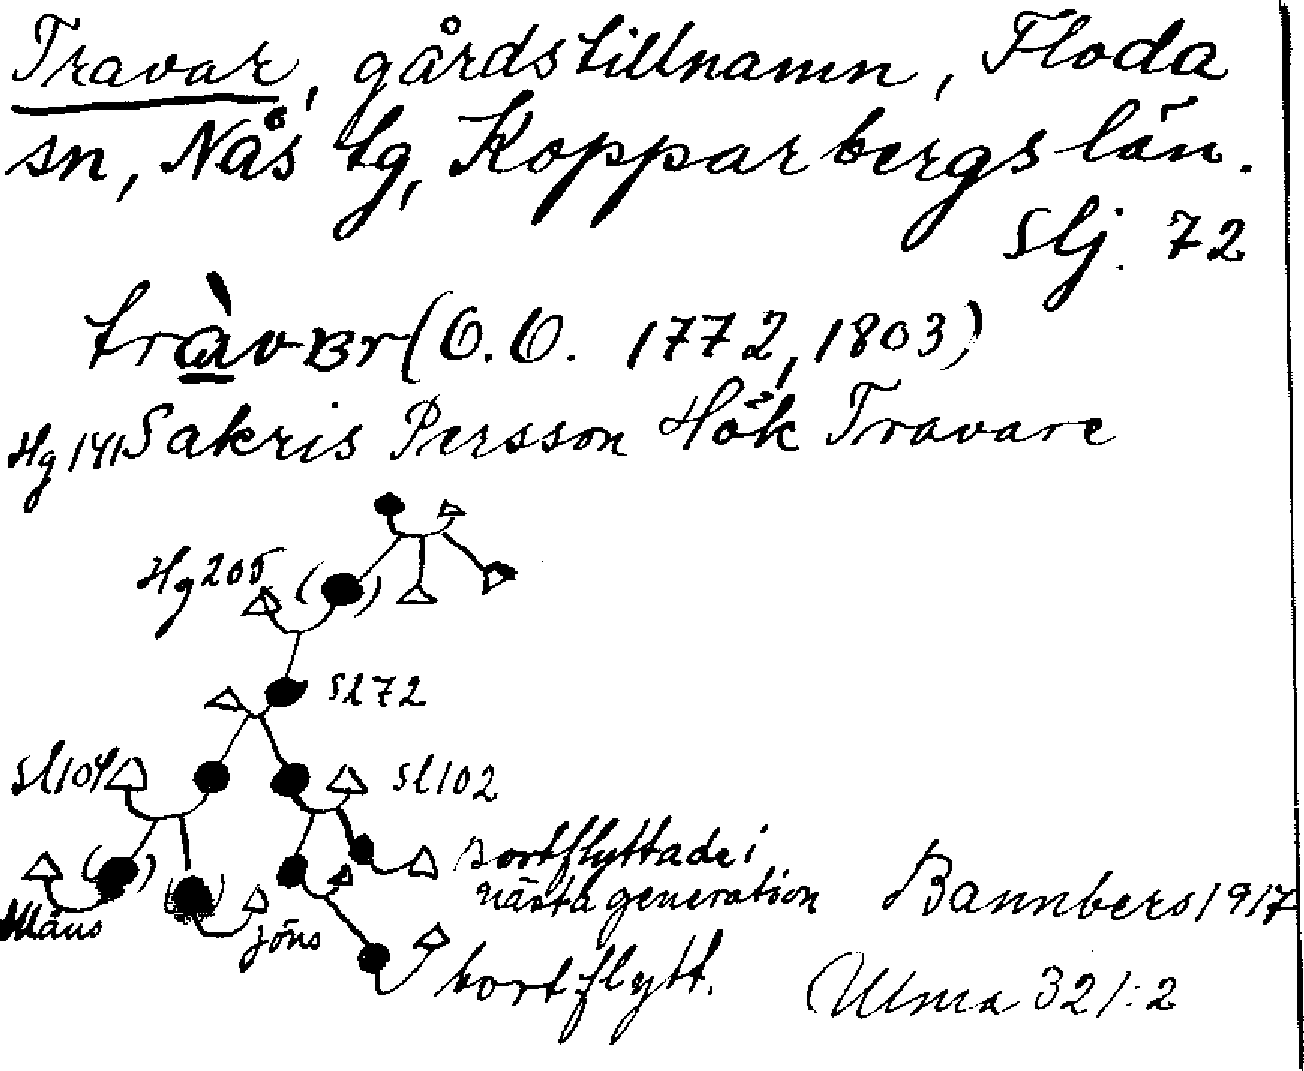 Travar, gårdstillnamn, Floda
sn, Nås tg, Kopparbergs län.
Slj. 72
tràvBr (O.O. 1772, 1803)
Hg 141 Sakris Persson Hök Travare
Hg 205
Sl 72
Sl 104
Sl 102
bortflyttade i
nästa generation
Bannbers 1917
Måns
Jöns
bortflytt.
Ulma 321:2